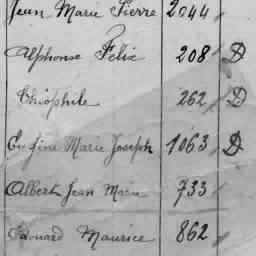 Jean Marie Pierre 2044
Alphonse Félix 208 D
Théophile 262 D
Eugène Marie Joseph 1063 D
Albert Jean Marie 733
Edouard Maurice 862